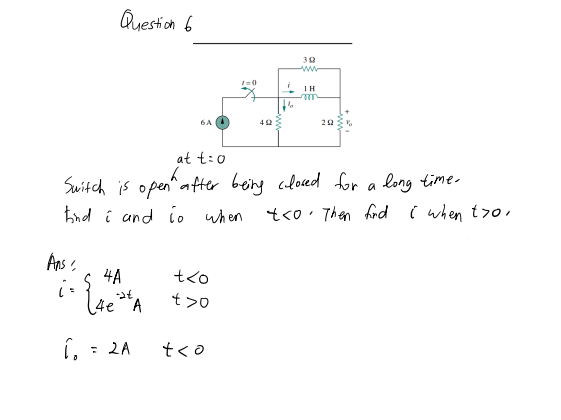 Question 6
3 Ω
t = 0
i
1 H
i₀
6 A
4 Ω
2 Ω
+
v₀
−
at t=0
Switch is open ^ after being closed for a long time.
Find i and i₀ when t<0. Then find i when t>0.
Ans:
i = { 4A t<0
4e⁻²ᵗA t>0
i₀ = 2A t<0